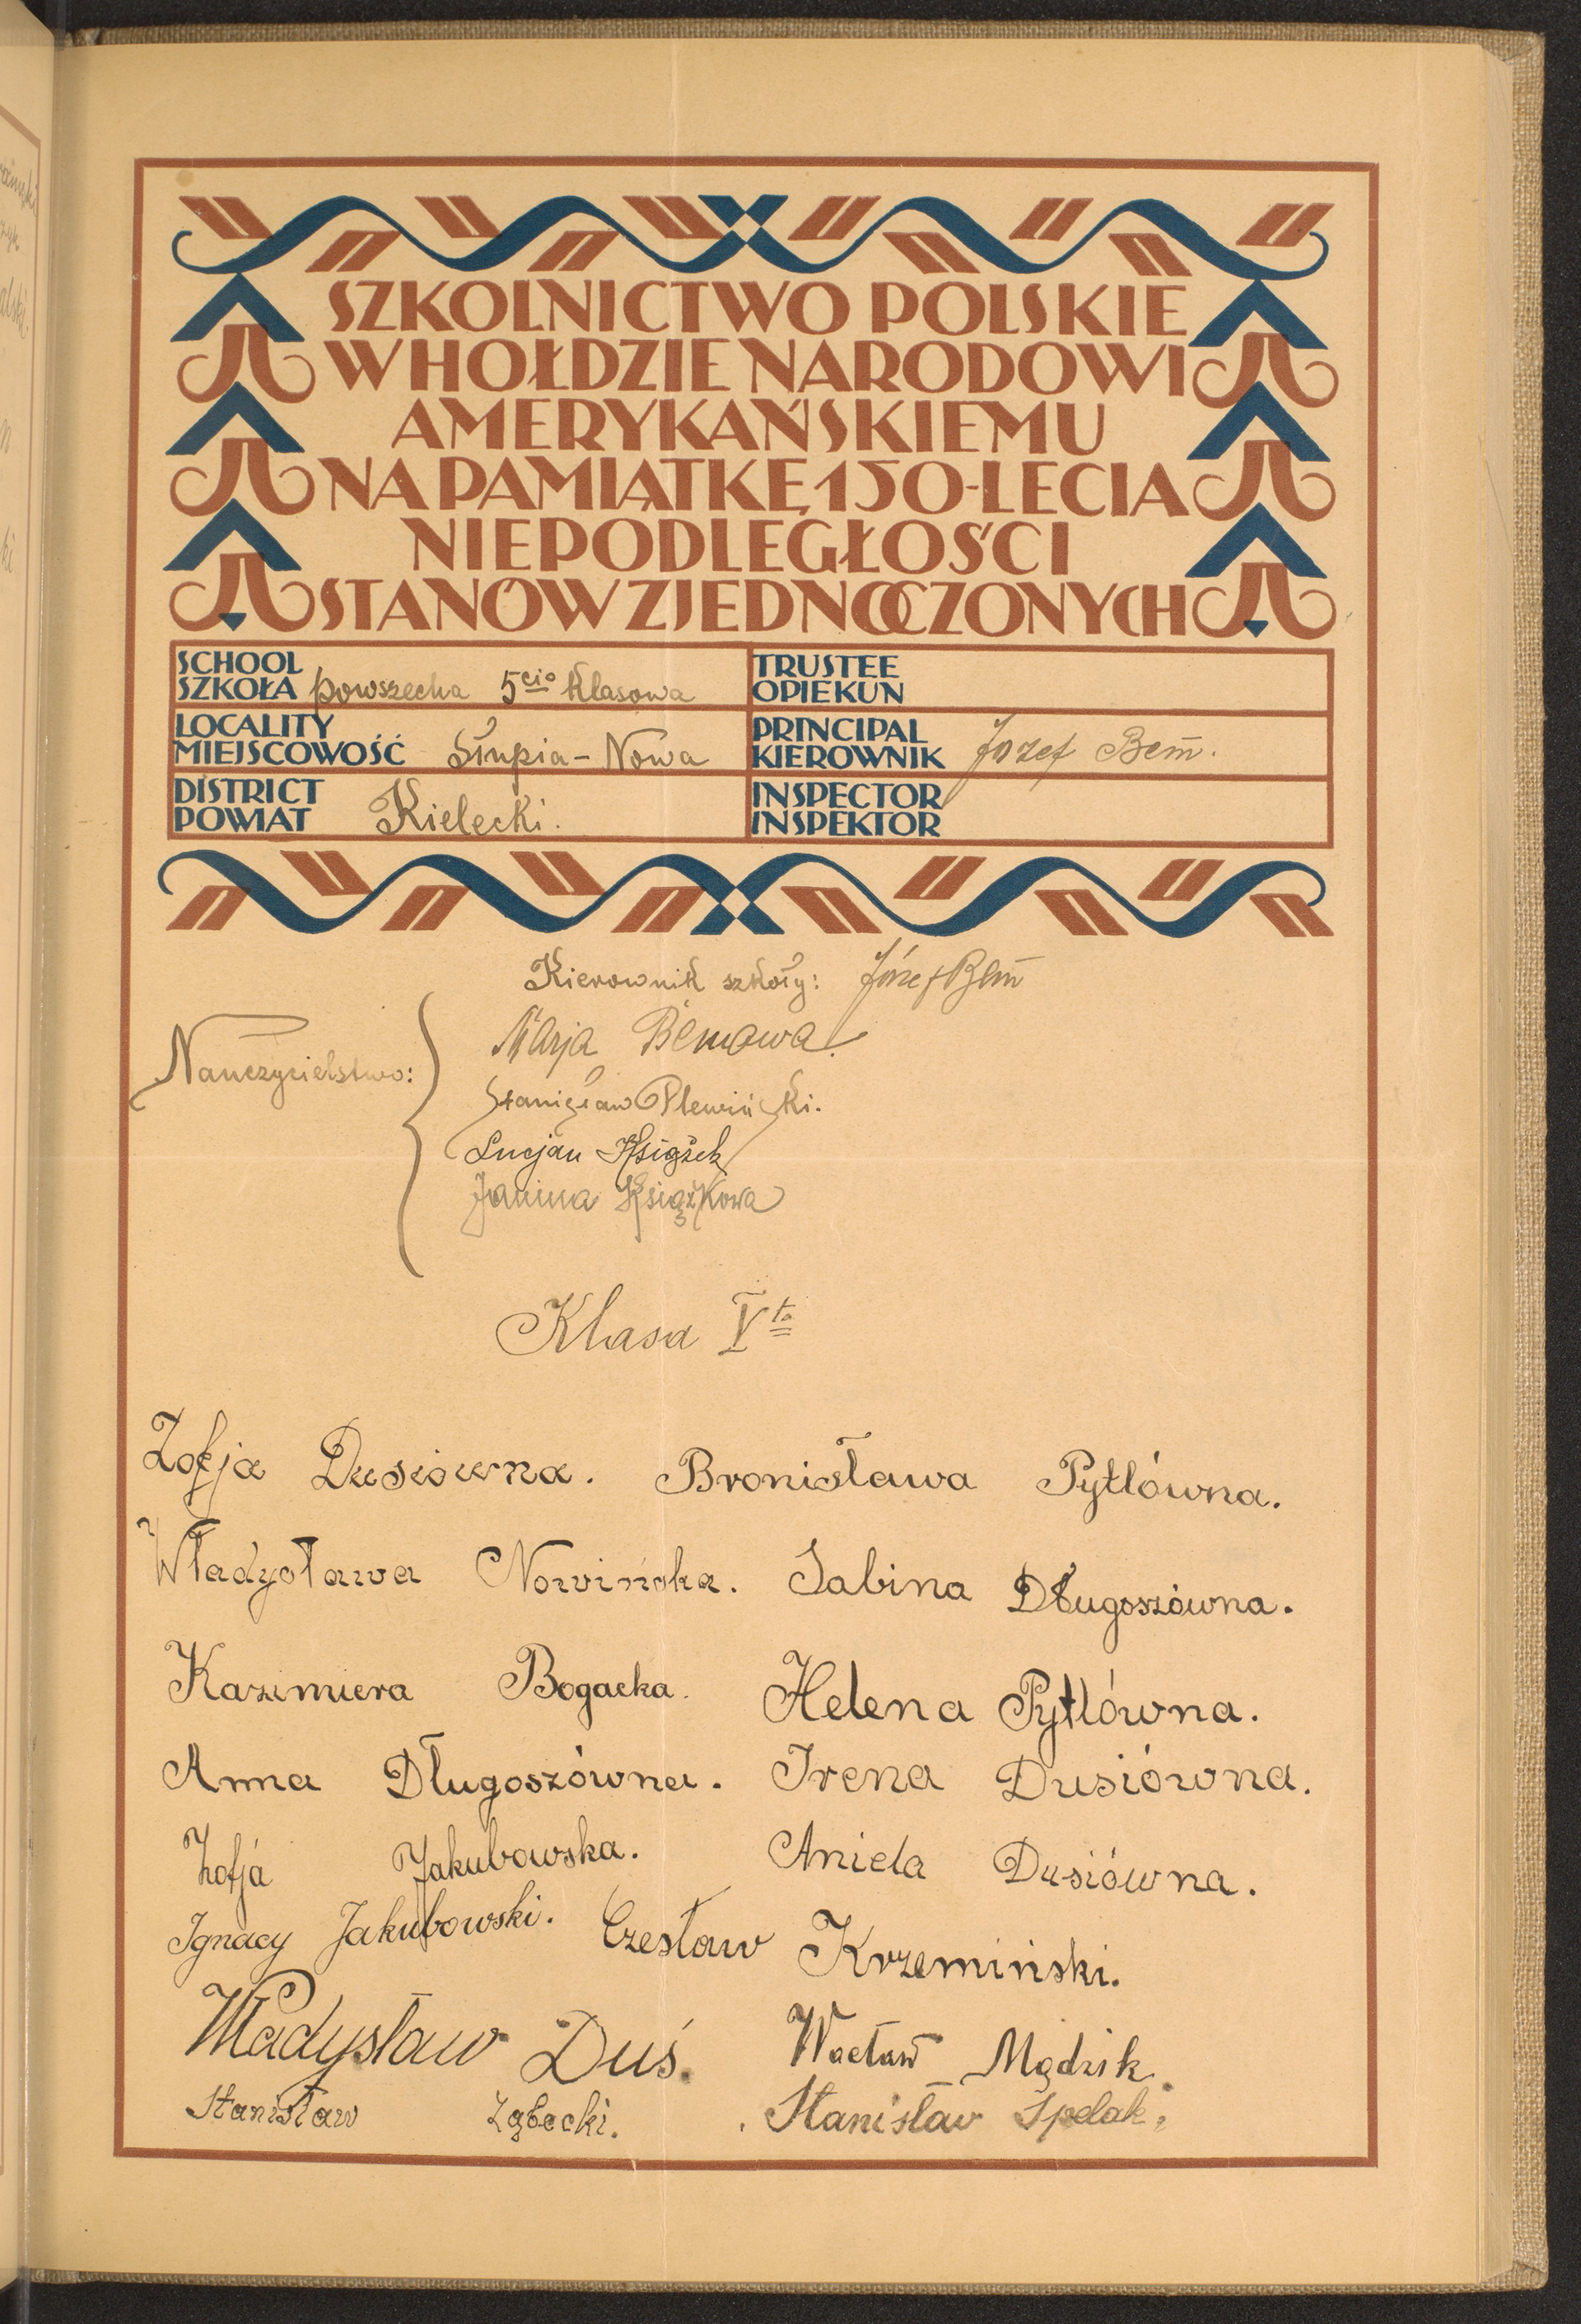 SZKOLNICTWO POLSKIE
W HOŁDZIE NARODOWI
AMERYKAŃSKIEMU
NA PAMIĄTKĘ 150-LECIA
NIEPODLEGŁOŚCI
STANÓW ZJEDNOCZONYCH
SCHOOL
SZKOŁA powszecha 5cio klasowa
TRUSTEE
OPIEKUN
LOCALITY
MIEJSCOWOŚĆ Słupia-Nowa
PRINCIPAL
KIEROWNIK Józef Bem.
DISTRICT
POWIAT Kielecki.
INSPECTOR
INSPEKTOR
Kierownik szkoły: Józef Bem
Nauczycielstwo:
Marja Bemowa
Stanisław Plewiński.
Lucjan Książek
Janina Książkowa
Klasa Vta
Zofja Dusiówna. Bronisława Pytlówna.
Władysława Nowińska. Sabina Długoszówna.
Kazimiera Bogacka. Helena Pytlówna.
Anna Długoszówna. Irena Dusiówna.
Zofja Jakubowska. Aniela Dusiówna.
Ignacy Jakubowski. Czesław Krzemiński.
Władysław Duś. Wacław Mądzik.
Stanisław Ząbecki. Stanisław Spelak.